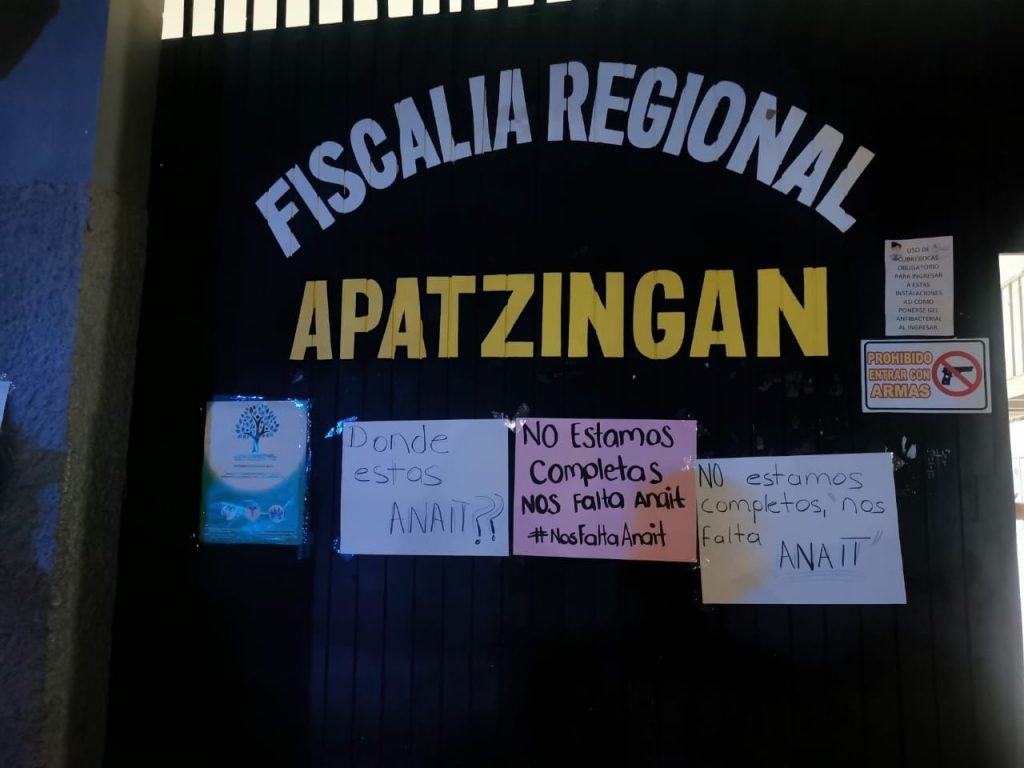 FISCALIA REGIONAL
APATZINGAN
USO DE
CUBREBOCAS
OBLIGATORIO
PARA INGRESAR
A ESTAS
INSTALACIONES
ASI COMO
PONERSE GEL
ANTIBACTERIAL
AL INGRESAR.
PROHIBIDO
ENTRAR CON
ARMAS
Donde
estas
ANAIT??
NO Estamos
Completas
NOS Falta Anait
#NosFaltaAnait
NO estamos
completos, "nos
falta
ANAIT"